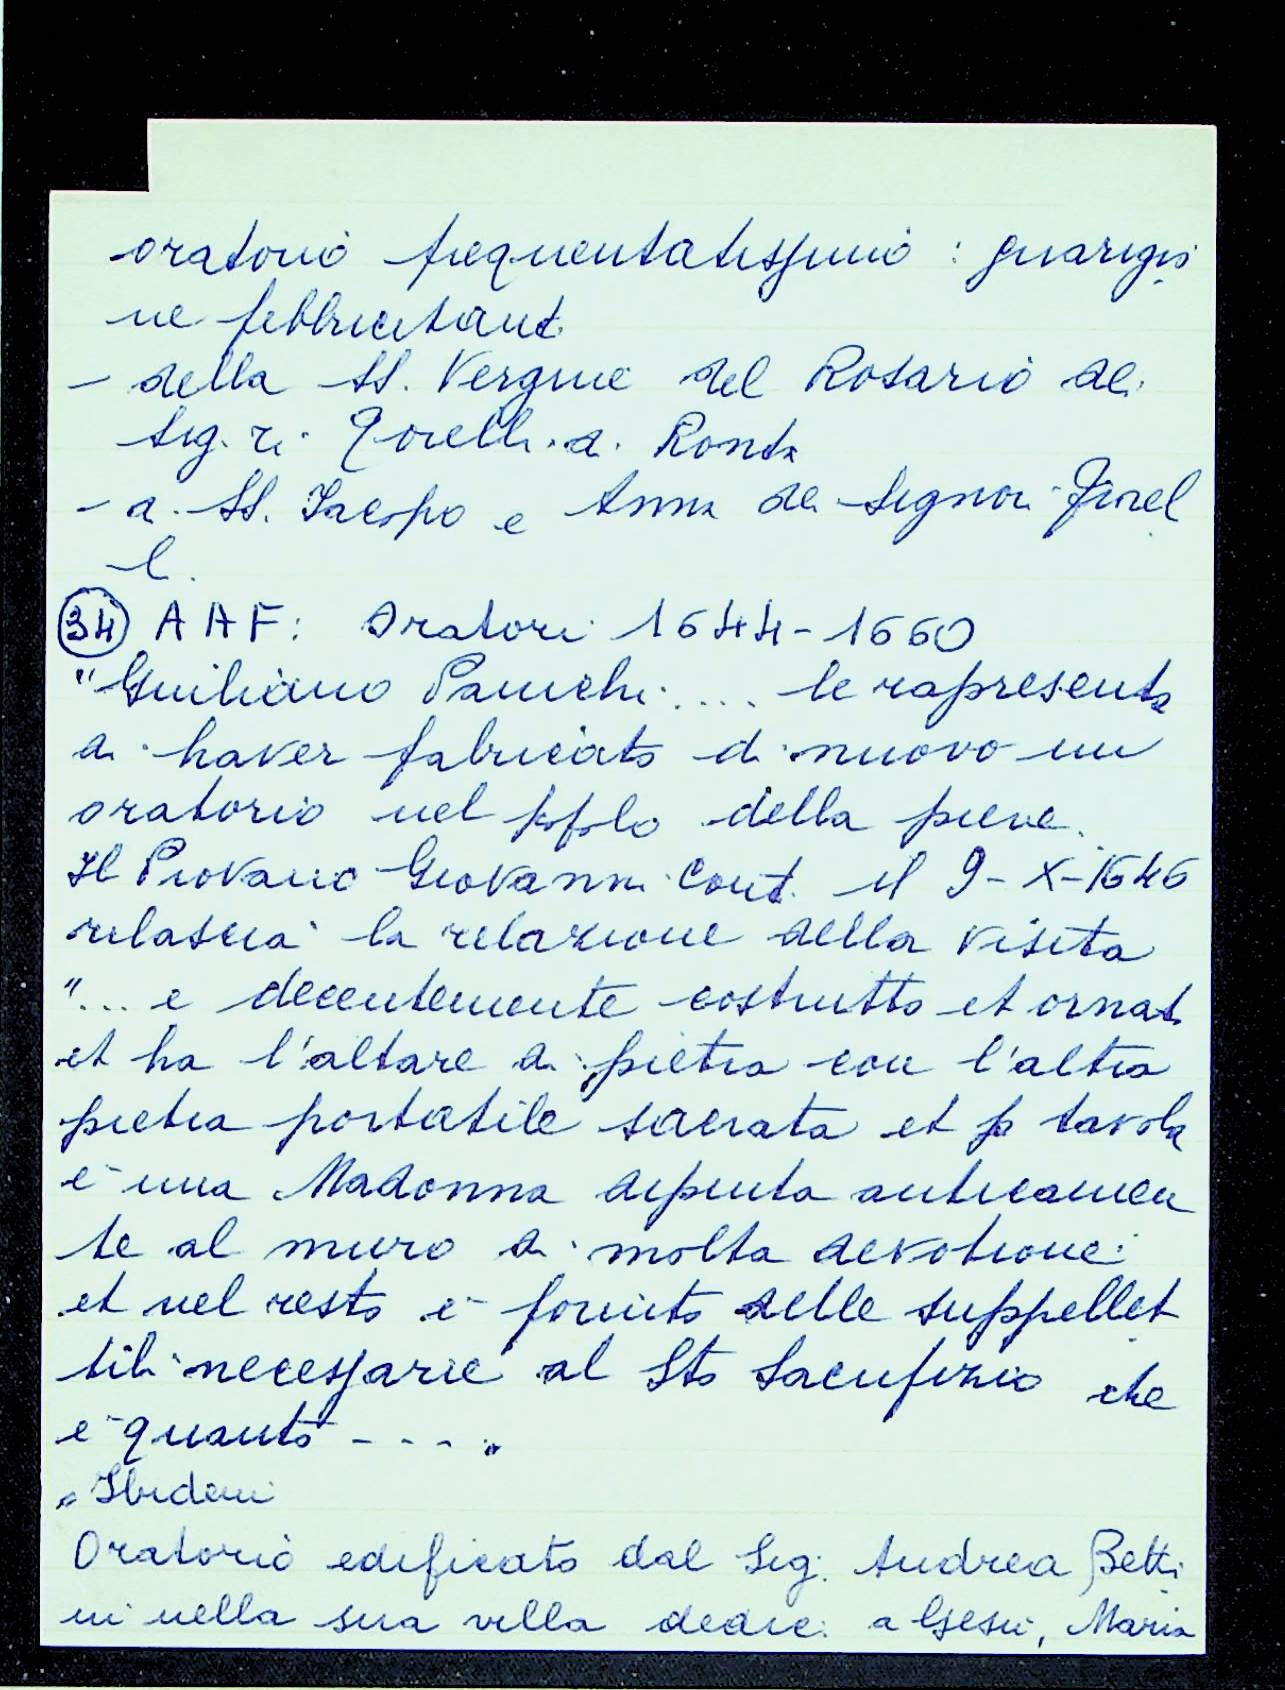 oratorio frequentatissimo : guarigio
ne febbricitanti
- della SS. Vergine del Rosario dei
Sig.ri Gorelli a Ronta
- a SS. Jacopo e Anna dei Signori
li
34 AAF: Oratori 1644-1660
"Giuliano Panichi .... le rapresenta
di haver fabricato di nuovo un
oratorio nel popolo della pieve.
Il Piovano Giovanni Conti il 9-X-1646
rilascia la relazione della visita
"... è decentemente costrutto et ornato
et ha l'altare di pietra con l'altra
pietra portatile sacrata et p tavola
è una Madonna dipinta anticamen
te al muro di molta devotione:
et nel resto è fornito delle suppellet
tili necessarie al Sto Sacrifizio che
è quanto - - - - "
" Ibidem
Oratorio edificato dal Sig. Andrea Betti
ni nella sua villa dedic. a Gesù, Maria